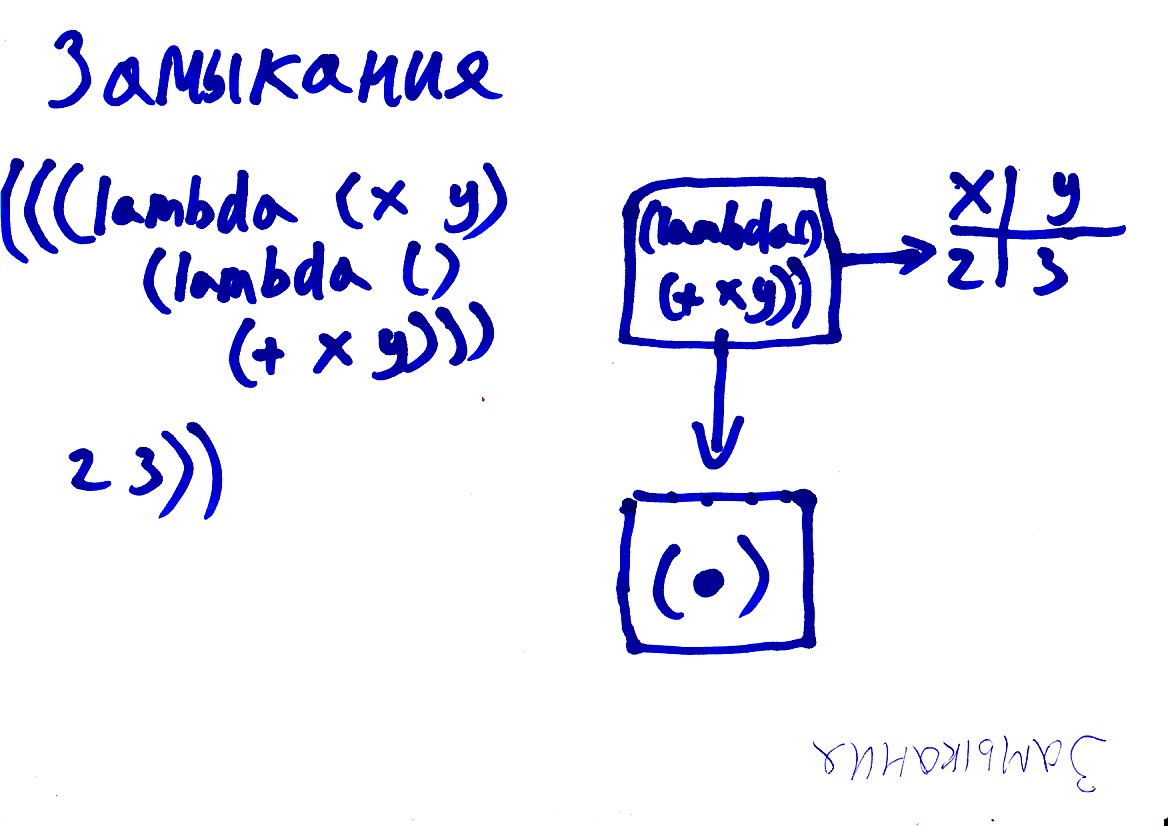 Замыкания
(((lambda (x y)
(lambda ()
(+ x y)))
2 3))
(lambda ()
(+ x y))
x y
2 3
(•)
Замыкания